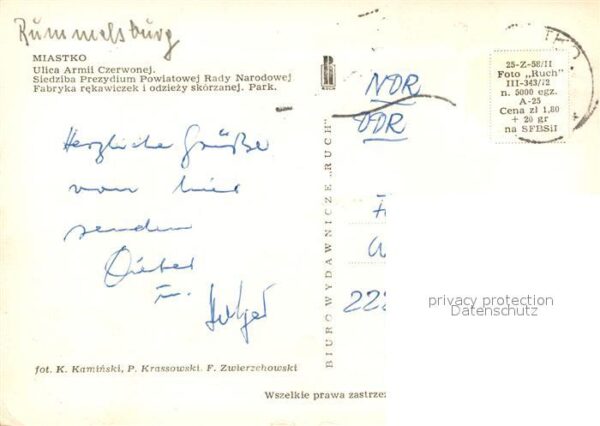 Rummelsburg
MIASTKO
Ulica Armii Czerwonej.
Siedziba Prezydium Powiatowej Rady Narodowej
Fabryka rękawiczek i odzieży skórzanej. Park.
25-Z-58/II
Foto „Ruch"
III-343/72
n. 5000 egz.
A-25
Cena zł 1,80
+ 20 gr
na SFBSiI
NDR
DDR
Herzliche Grüße
von hier
senden
Dieter
u.
BIURO WYDAWNICZE „RUCH"
222
privacy protection
Datenschutz
fot. K. Kamiński, P. Krassowski. F. Zwierzchowski
Wszelkie prawa zastrze